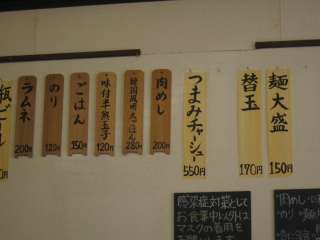 麺大盛
150円
替玉
170円
つまみチャーシュー
550円
肉めし
200円
韓国風明太ごはん
280円
味付半熟玉子
120円
ごはん
150円
のり
120円
ラムネ
200円
瓶ビール
感染症対策として
お食事中以外は
マスクの着用を
肉めし
のり